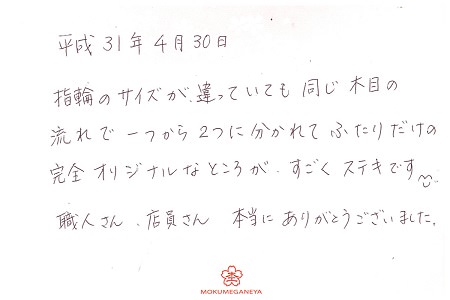 平成 31年 4月 30日
指輪のサイズが、違っていても 同じ 木目の
流れで 一つから 2つに 分かれて ふたりだけの
完全 オリジナルなところが、すごく ステキです
職人さん、店員さん 本当に ありがとうございました。
MOKUMEGANEYA